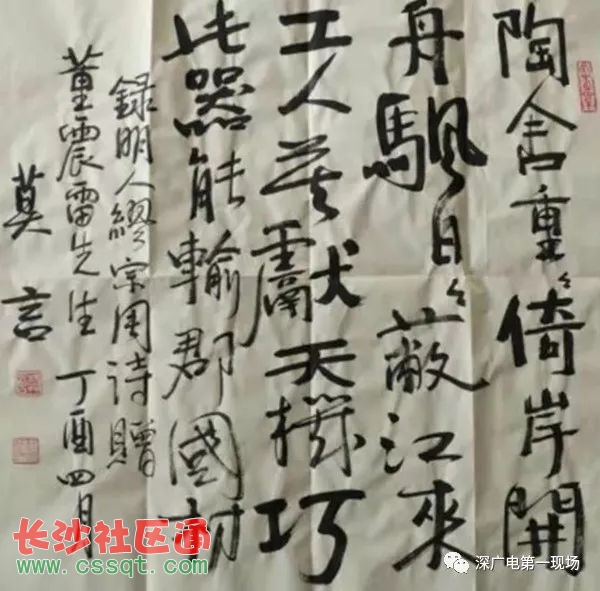 陶舍重々倚岸開
舟颿日々蔽江來
工人莫獻天機巧
此器能輸郡國材
録明人繆宗周诗贈
董震雷先生 丁酉四月
莫言
长沙社区通
www.cssqt.com
深广电第一现场